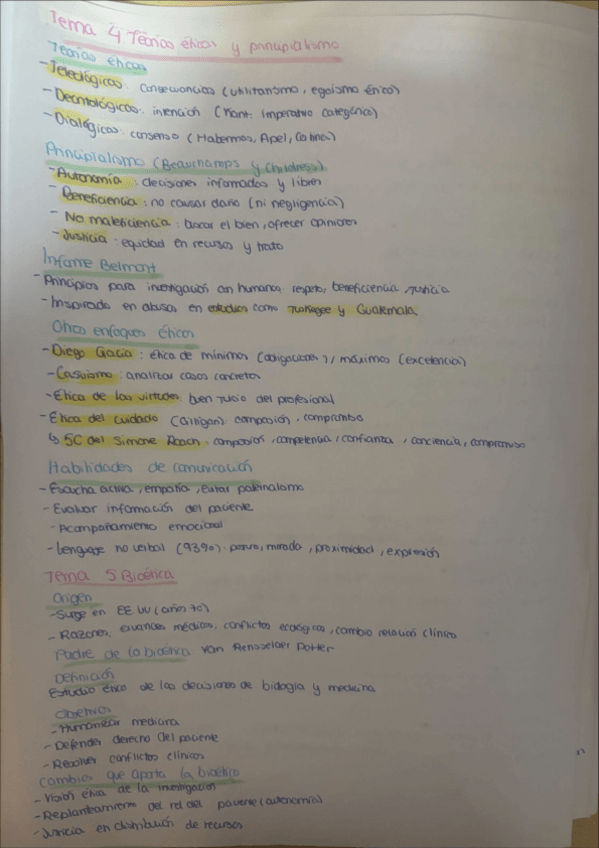 Tema 4 Teorías éticas y principialismo
Teorías éticas
- Teleológicas: consecuencias (utilitarismo, egoísmo ético)
- Deontológicas: intención (Kant: Imperativo categórico)
- Dialógicas: consenso (Habermas, Apel, Cortina)
Principialismo (Beauchamps y Childress)
- Autonomía: decisiones informadas y libres
- Beneficiencia: no causar daño (ni negligencia)
- No maleficiencia: buscar el bien, ofrecer opiniones
- Justicia: equidad en recursos y trato
Informe Belmont
- Principios para investigación con humanos: respeto, beneficiencia, justicia
- Inspirado en abusos en estudios como Tuskegee y Guatemala
Otros enfoques éticos
- Diego Gracia: ética de mínimos (obligaciones) / máximos (excelencia)
- Casuismo: analizar casos concretos
- Ética de las virtudes: buen juicio del profesional
- Ética del cuidado (Gilligan): compasión, compromiso
↳ 5C del Simone Roach: compasión, competencia, confianza, conciencia, compromiso
Habilidades de comunicación
- Escucha activa, empatía, evitar paternalismo
- Evaluar información del paciente
- Acompañamiento emocional
- Lenguaje no verbal (93%): mirada, proximidad, expresión
Tema 5 Bioética
Origen
- Surge en EE UU (años 70)
- Razones: avances médicos, conflictos ecológicos, cambio relación clínica
Padre de la bioética: Van Rensselaer Potter
Definición
Estudio ético de las decisiones de biología y medicina
Objetivos
- Humanizar medicina
- Defender derecho del paciente
- Resolver conflictos clínicos
Cambios que aporta la bioética
- Visión ética de la investigación
- Replanteamiento del rol del paciente (autonomía)
- Justicia en distribución de recursos